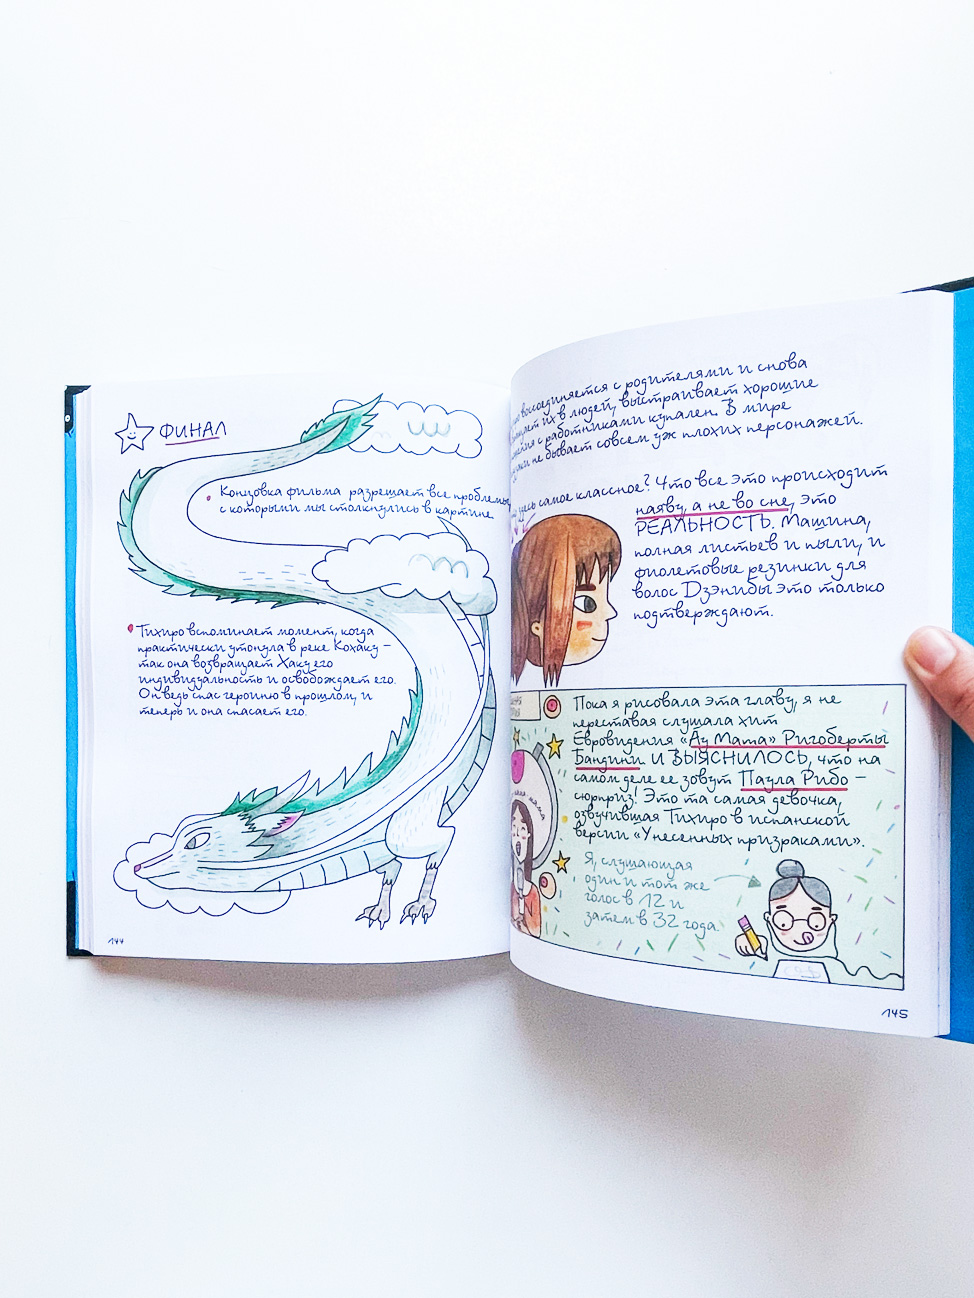 ФИНАЛ
Концовка фильма разрешает все проблемы,
с которыми мы столкнулись в картине.
Тихиро вспоминает момент, когда
практически утонула в реке Кохаку –
так она возвращает Хаку его
индивидуальность и освобождает его.
Он ведь спас героиню в прошлом, и
теперь и она спасает его.
144
воссоединяется с родителями и снова
их в людей, выстраивает хорошие
с работниками купален. В мире
не бывает совсем уж плохих персонажей.
здесь самое классное? Что все это происходит
наяву, а не во сне, это
РЕАЛЬНОСТЬ. Машина,
полная листьев и пыли, и
фиолетовые резинки для
волос Дзэнибы это только
подтверждают.
Пока я рисовала эта главу, я не
переставая слушала хит
Евровидения «Ay Mama» Ригоберты
Бандини И ВЫЯСНИЛОСЬ, что на
самом деле ее зовут Паула Рибо –
сюрприз! Это та самая девочка,
озвучившая Тихиро в испанской
версии «Унесенных призраками».
Я, слушающая
один и тот же
голос в 12 и
затем в 32 года.
145